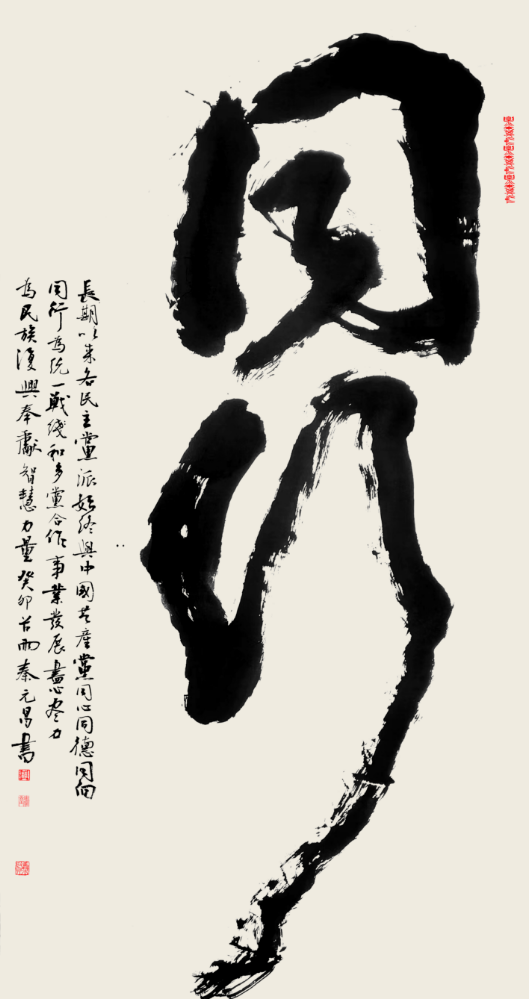 同行
長期以来各民主黨派始终與中國共産黨同心同德同向
同行為统一戰线和多黨合作事業發展盡心尽力
為民族復興奉獻智慧力量癸卯谷雨秦元昌書